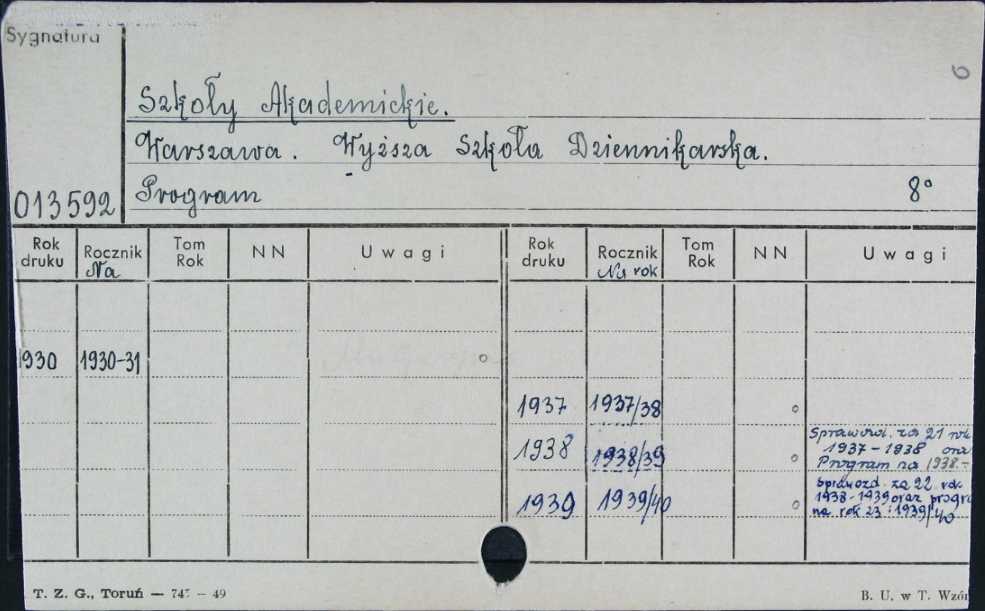 Sygnatura
6
Szkoły Akademickie.
Warszawa. Wyższa Szkoła Dziennikarska.
013592 Program 8°
Rok druku Rocznik Tom Rok NN Uwagi Rok druku Rocznik Tom Rok NN Uwagi
Na Na rok
1930 1930-31
1937 1937/38
1938 1938/39 Sprawozd. za 21 rok
1937-1938 oraz
Program na 1938.-
1939 1939/40 Sprawozd. za 22 rok
1938-1939 oraz progra
na rok 23: 1939/40
T. Z. G., Toruń — 747 - 49 B. U. w T. Wzór